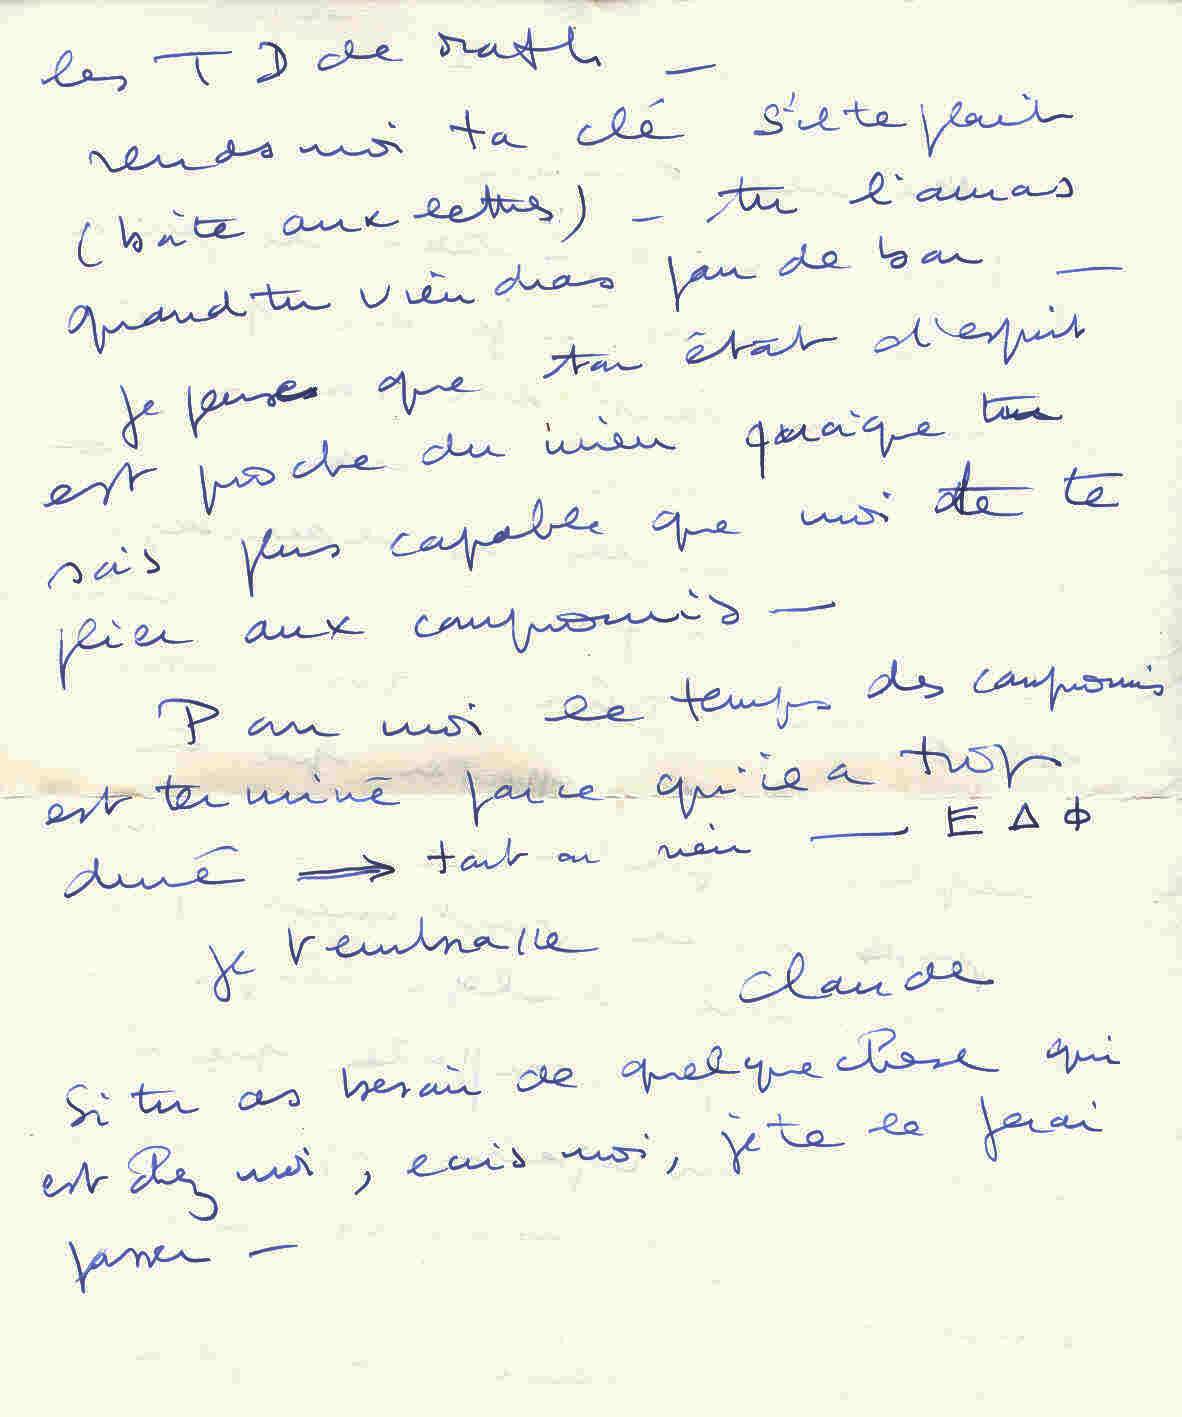 les TD de math —
rends moi ta clé s'il te plait
(boîte aux lettres) — tu l'auras
quand tu viendras pour de bon —
je pense que ton état d'esprit
est proche du mien quoique tu
sois plus capable que moi de te
plier aux compromis —
Pour moi le temps des compromis
est terminé parce qu'il a trop
duré ⟹ tout ou rien — E Δ Φ
je t'embrasse
Claude
Si tu as besoin de quelque chose qui
est chez moi, écris moi, je te le ferai
passer —